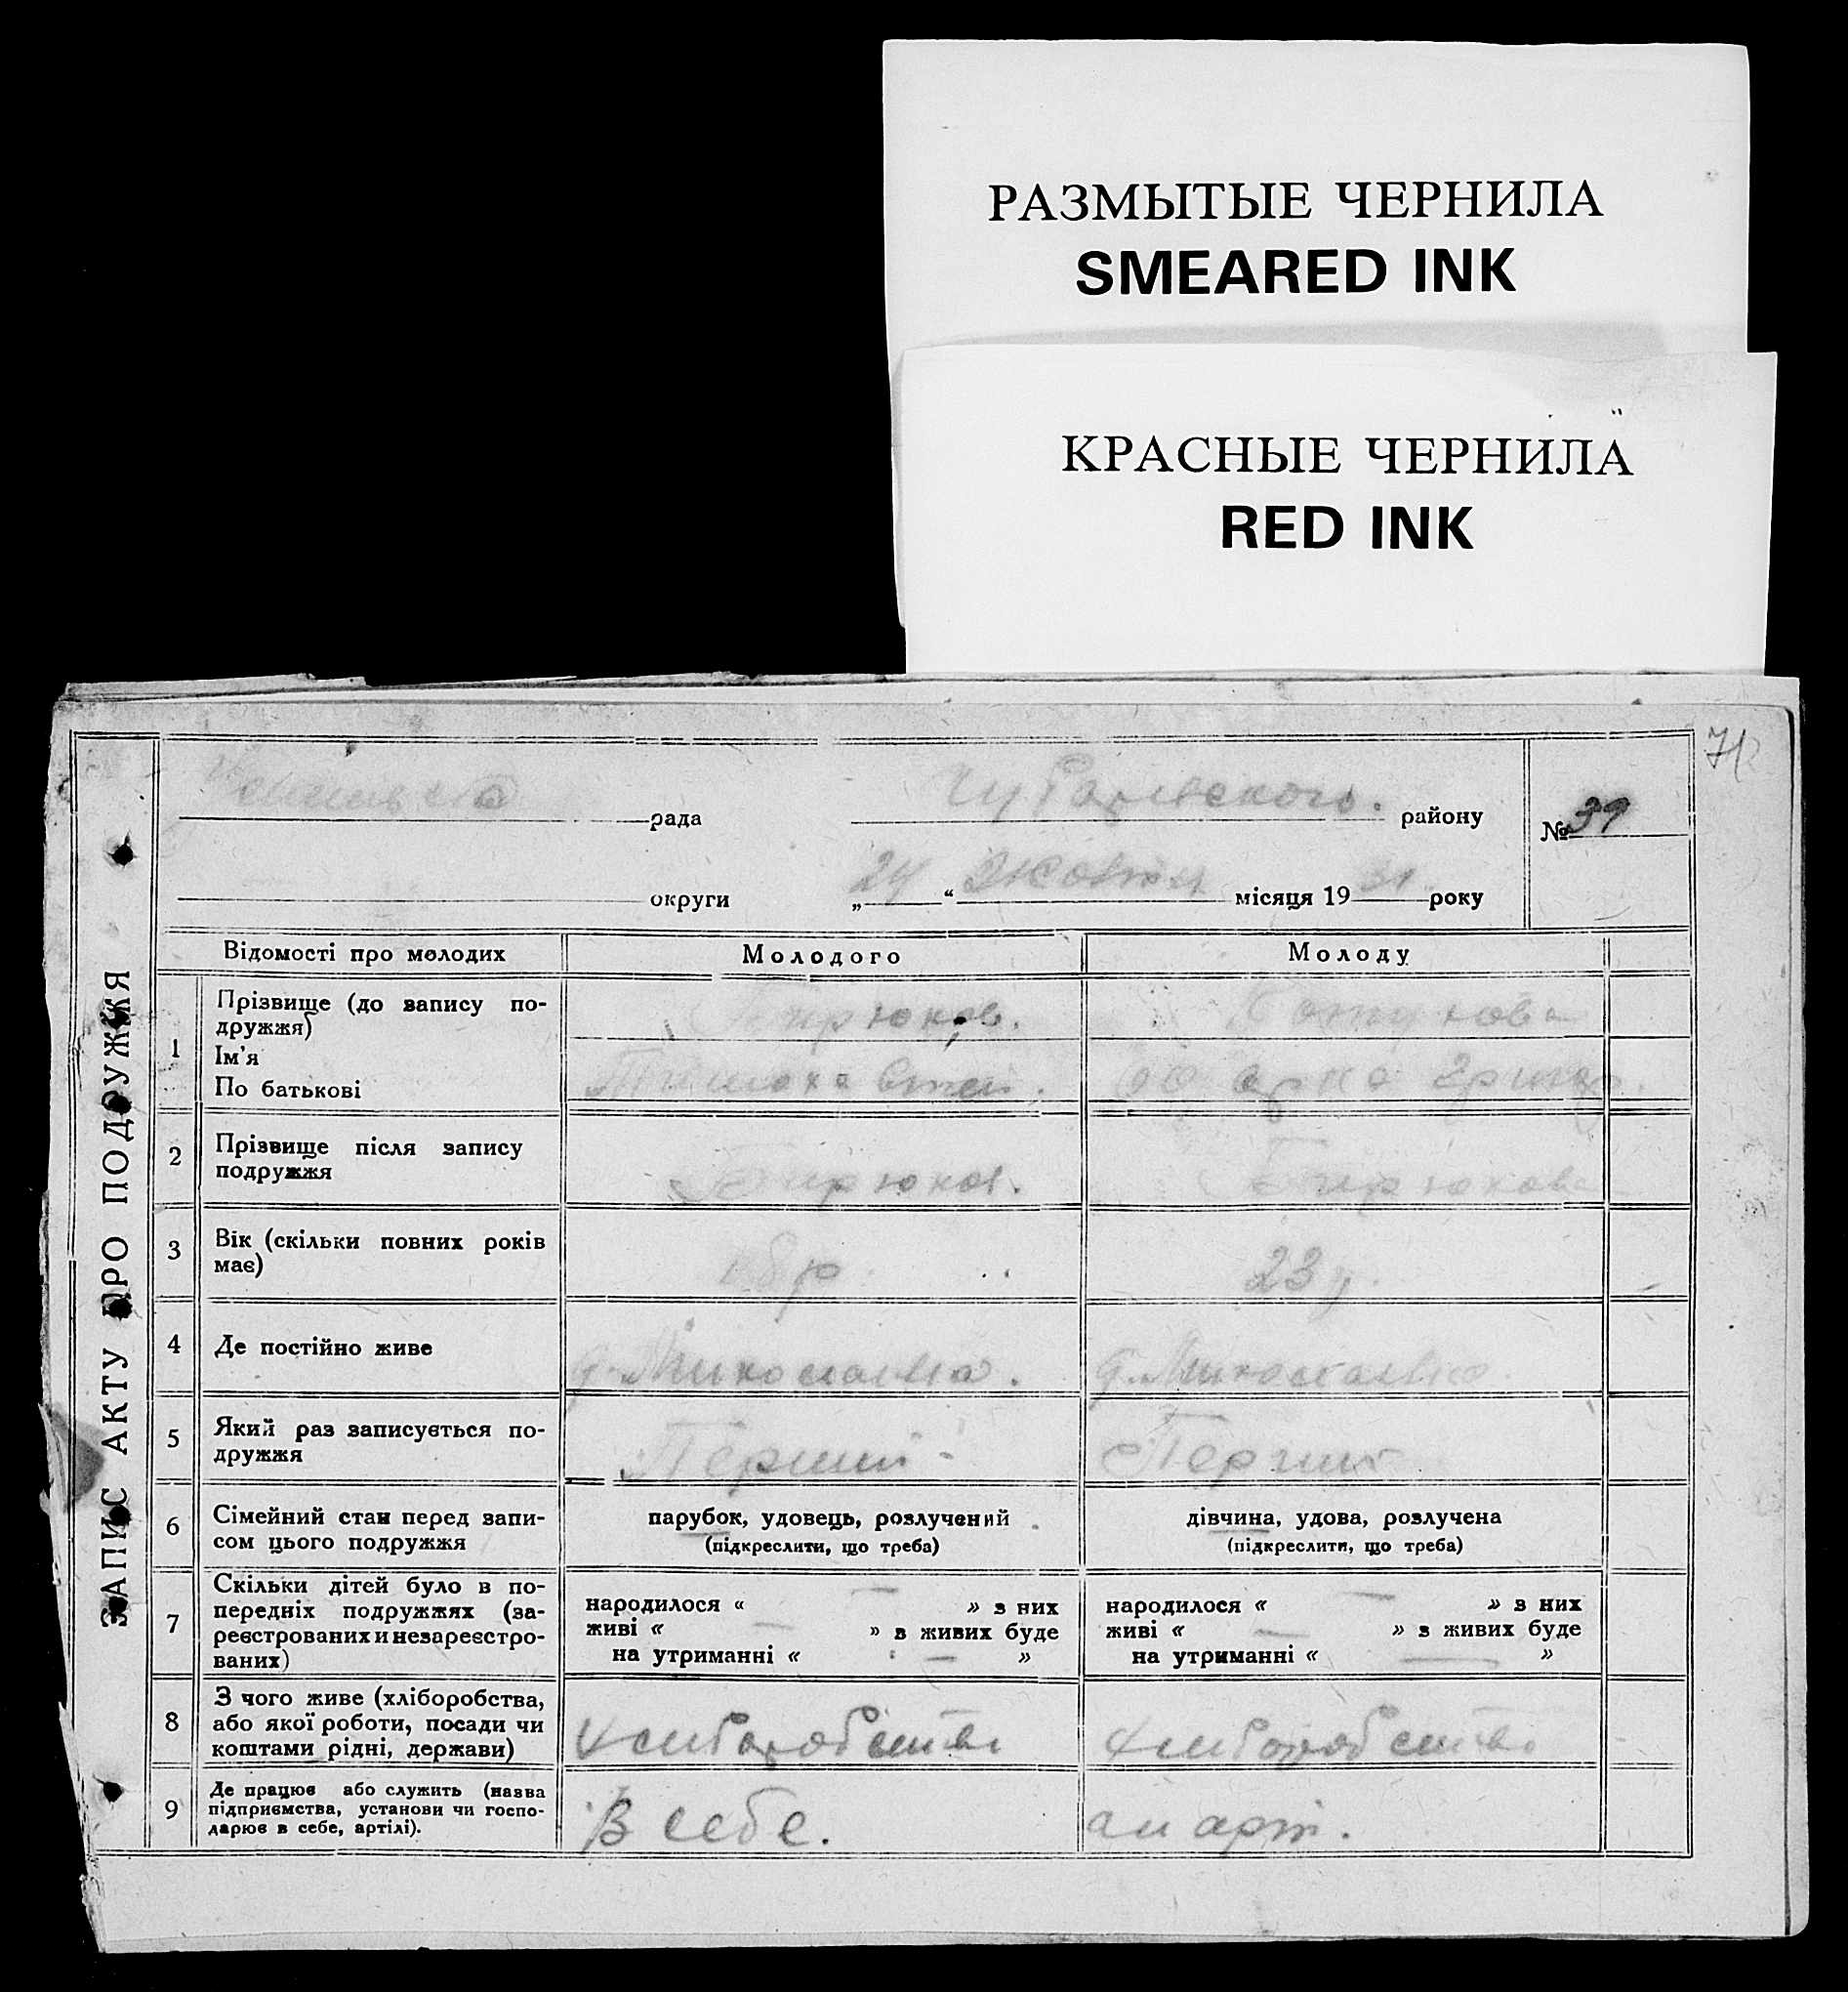 РАЗМЫТЫЕ ЧЕРНИЛА
SMEARED INK
КРАСНЫЕ ЧЕРНИЛА
RED INK
ЗАПИС АКТУ ПРО ПОДРУЖЖЯ
рада
району
№ 39
округи
„24“ Жовтня місяця 1931 року
Відомості про молодих
Молодого
Молоду
1
Прізвище (до запису по-
дружжя)
Ім'я
По батькові
Бирюков.
2
Прізвище після запису
подружжя
Бирюков.
Бирюкова
3
Вік (скільки повних років
має)
23 р.
4
Де постійно живе
с. Миколаївка.
с. Миколаївка
5
Який раз записується по-
дружжя
Перший
Перший
6
Сімейний стан перед запи-
сом цього подружжя
парубок, удовець, розлучений
(підкреслити, що треба)
дівчина, удова, розлучена
(підкреслити, що треба)
7
Скільки дітей було в по-
передніх подружжях (за-
реєстрованих и незареєстро-
ваних)
народилося « — » з них
живі « — » в живих буде
на утриманні « — »
народилося « — » в них
живі « — » з живих буде
на утриманні « — »
8
З чого живе (хліборобства,
або якої роботи, посади чи
коштами рідні, держави)
хліборобство
хліборобство
9
Де працює або служить (назва
підприємства, установи чи госпо-
дарює в себе, артілі).
В себе.